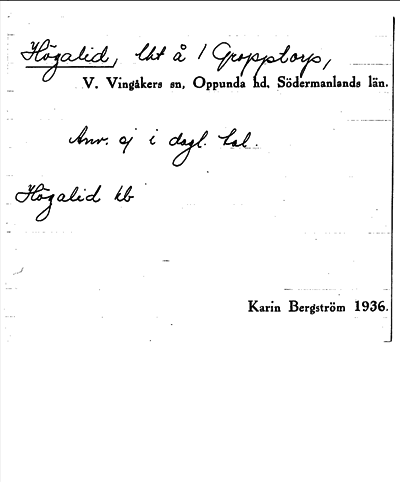 Högalid, lht å 1 Gropptorp,
V. Vingåkers sn, Oppunda hd, Södermanlands län.
Anv. ej i dagl. tal.
Högalid kb
Karin Bergström 1936.